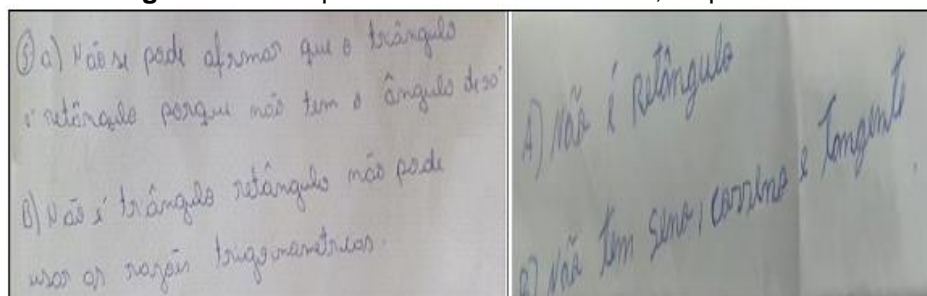 ⑤ a) Não se pode afirmar que o triângulo
é retângulo porque não tem o ângulo de 90°
B) Não é triângulo retângulo não pode
usar as razões trigonometricas.
A) Não é Retângulo
B) Não tem seno, cosseno e Tangente.